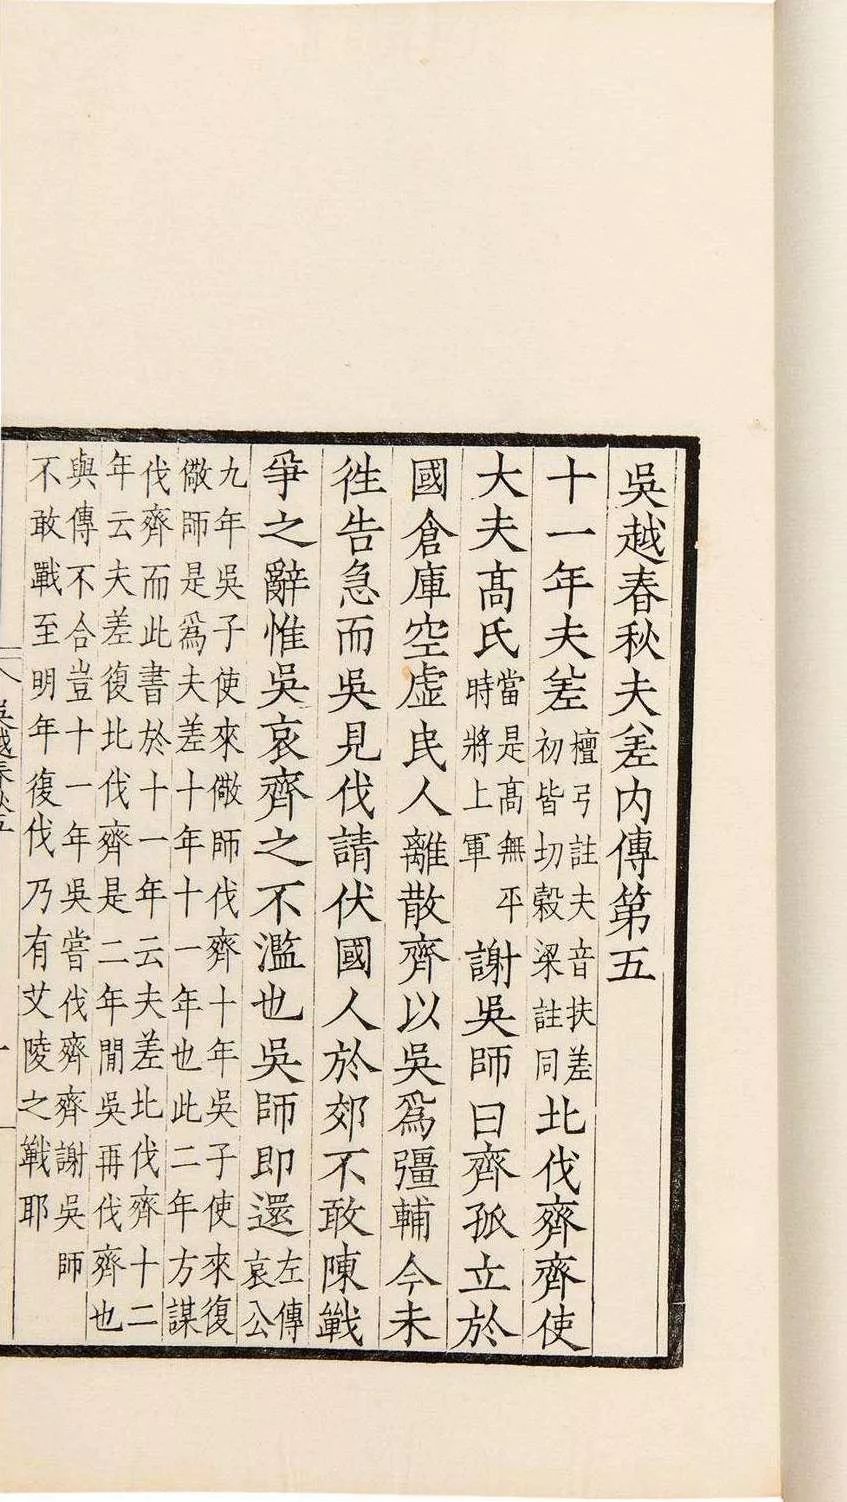 吳越春秋夫差內傳第五
十一年夫差檀弓註夫音扶差初皆切榖梁註同北伐齊齊使
大夫髙氏當是髙無平時將上軍謝吳師曰齊孤立於
國倉庫空虛民人離散齊以吳為彊輔今未
徃告急而吳見伐請伏國人於郊不敢陳戰
爭之辭惟吳哀齊之不濫也吳師即還左傳哀公
九年吳子使來儆師伐齊十年吳子使來復
儆師是爲夫差十年十一年也此二年方謀
伐齊而此書於十一年云夫差北伐齊十二
年云夫差復北伐齊是二年閒吳再伐齊也
與傳不合豈十一年吳嘗伐齊齊謝吳師
不敢戰至明年復伐乃有艾陵之戰耶
吳越春秋五